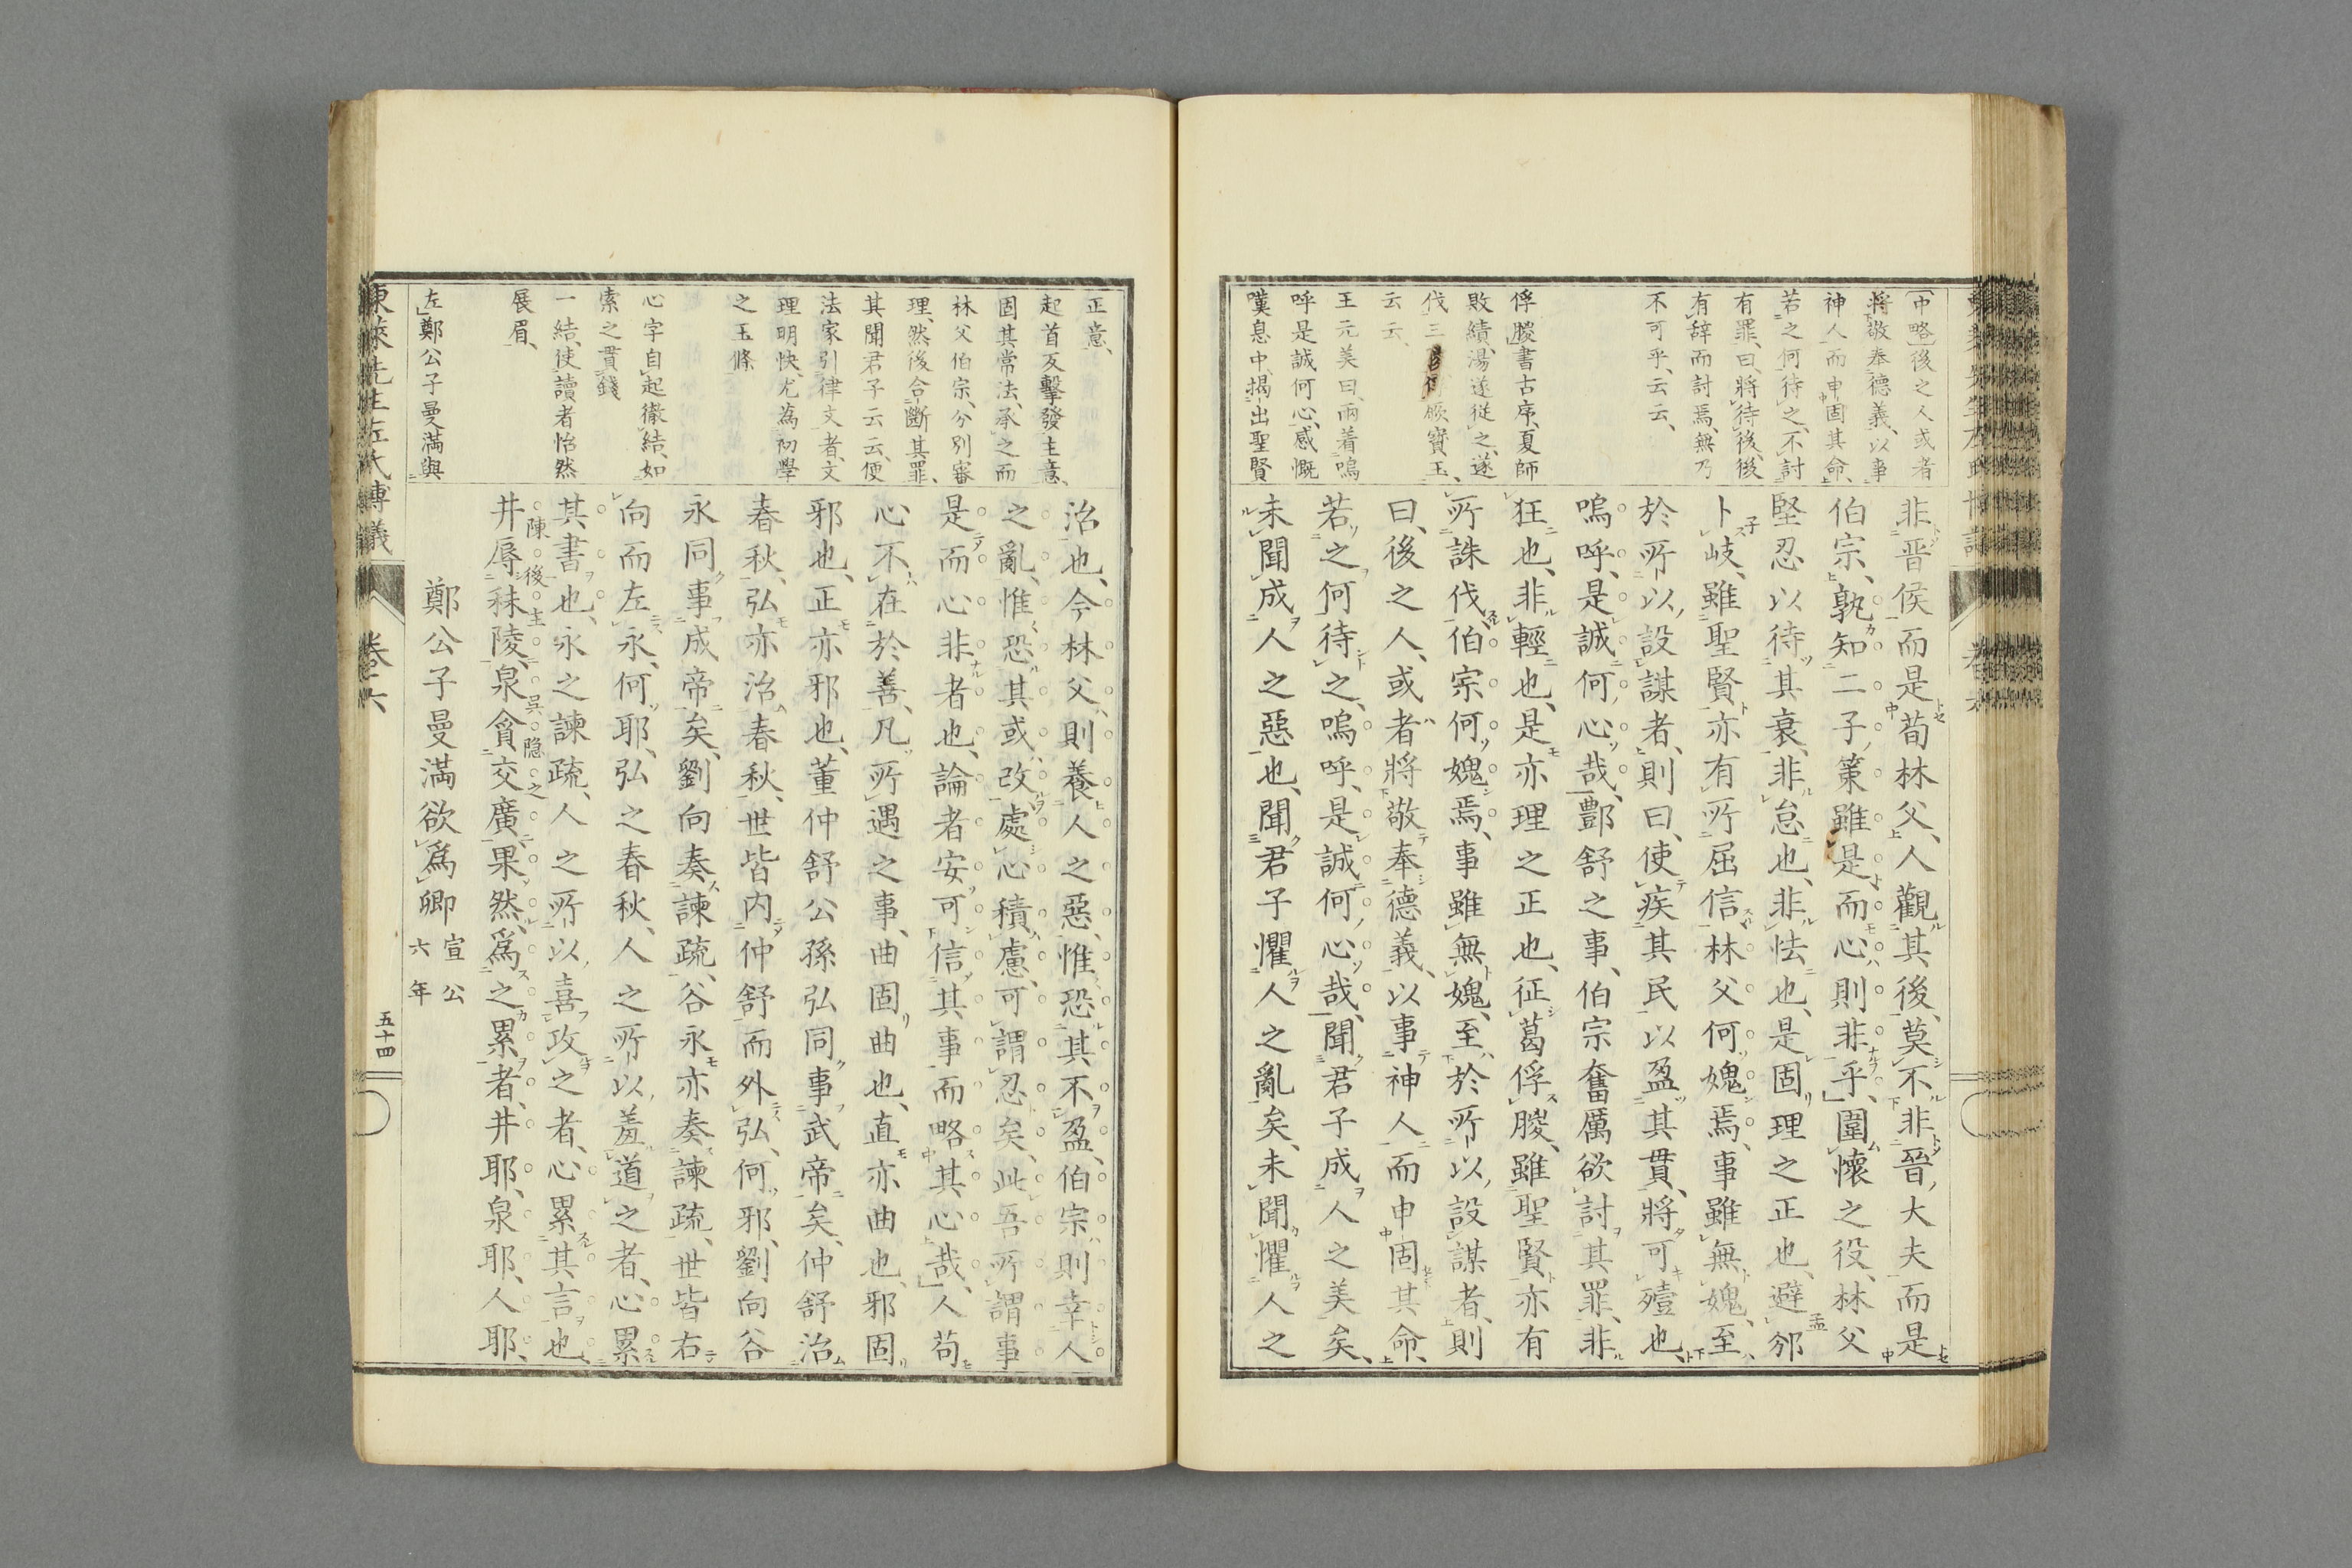 (中略)後之人或者
將敬奉德義、以事
神人而申固其命、
若之何待之、不討
有罪、曰、將待後、後
有辞而討焉、無乃
不可乎、云云、
俘朡書古序、夏師
敗績、湯遂從之、遂
伐三 厥寳玉、
云云、
王元美曰、兩着嗚
呼是誠何心、感慨
嘆息中、揭出聖賢
非晋侯而是荀林父、人觀其後、莫不非晉大夫而是
伯宗、孰知二子策雖是而心則非乎、圍懷之役、林父
堅忍以待其衰、非怠也、非怯也、是固理之正也、避邠
卜岐、雖聖賢亦有所屈信、林父何媿焉、事雖無媿、至
於所以設謀者、則曰、使疾其民以盈其貫、將可殪也、
嗚呼、是誠何心哉、酆舒之事、伯宗奮厲欲討其罪、非
狂也、非輕也、是亦理之正也、征葛俘朡、雖聖賢亦有
所誅伐、伯宗何媿焉、事雖無媿、至於所以設謀者、則
曰、後之人、或者將敬奉德義、以事神人而申固其命、
若之何待之、嗚呼、是誠何心哉、聞君子成人之美矣、
未聞成人之惡也、聞君子懼人之亂矣、未聞懼人之
正意、
起首反擊發主意、
固其常法、承之而
林父伯宗、分別審
理、然後合斷其罪、
其聞君子云云、便
法家引律文者、文
理明快、尤為初學
之玉條
心字自起徹結、如
索之貫錢
一結、使讀者怡然
展眉、
左鄭公子曼滿與
治也、今林父、則養人之惡、惟恐其不盈、伯宗則幸人
之亂、惟恐其或改、處心積慮、可謂忍矣、此吾所謂事
是而心非者也、論者安可信其事而略其心哉、人苟
心不在於善、凡所遇之事、曲固曲也、直亦曲也、邪固
邪也、正亦邪也、董仲舒公孫弘同事武帝矣、仲舒治
春秋、弘亦治春秋、世皆内仲舒而外弘、何邪、劉向谷
永同事成帝矣、劉向奏諫疏、谷永亦奏諫疏、世皆右
向而左永、何耶、弘之春秋、人之所以羞道之者、心累
其書也、永之諫疏、人之所以喜攻之者、心累其言也、
井辱秣陵、泉貪交廣、果然為之累者、井耶、泉耶、人耶、
陳後主 呉隱之
鄭公子曼滿欲爲卿 宣公六年
東萊先生左氏博議 卷六 五十四